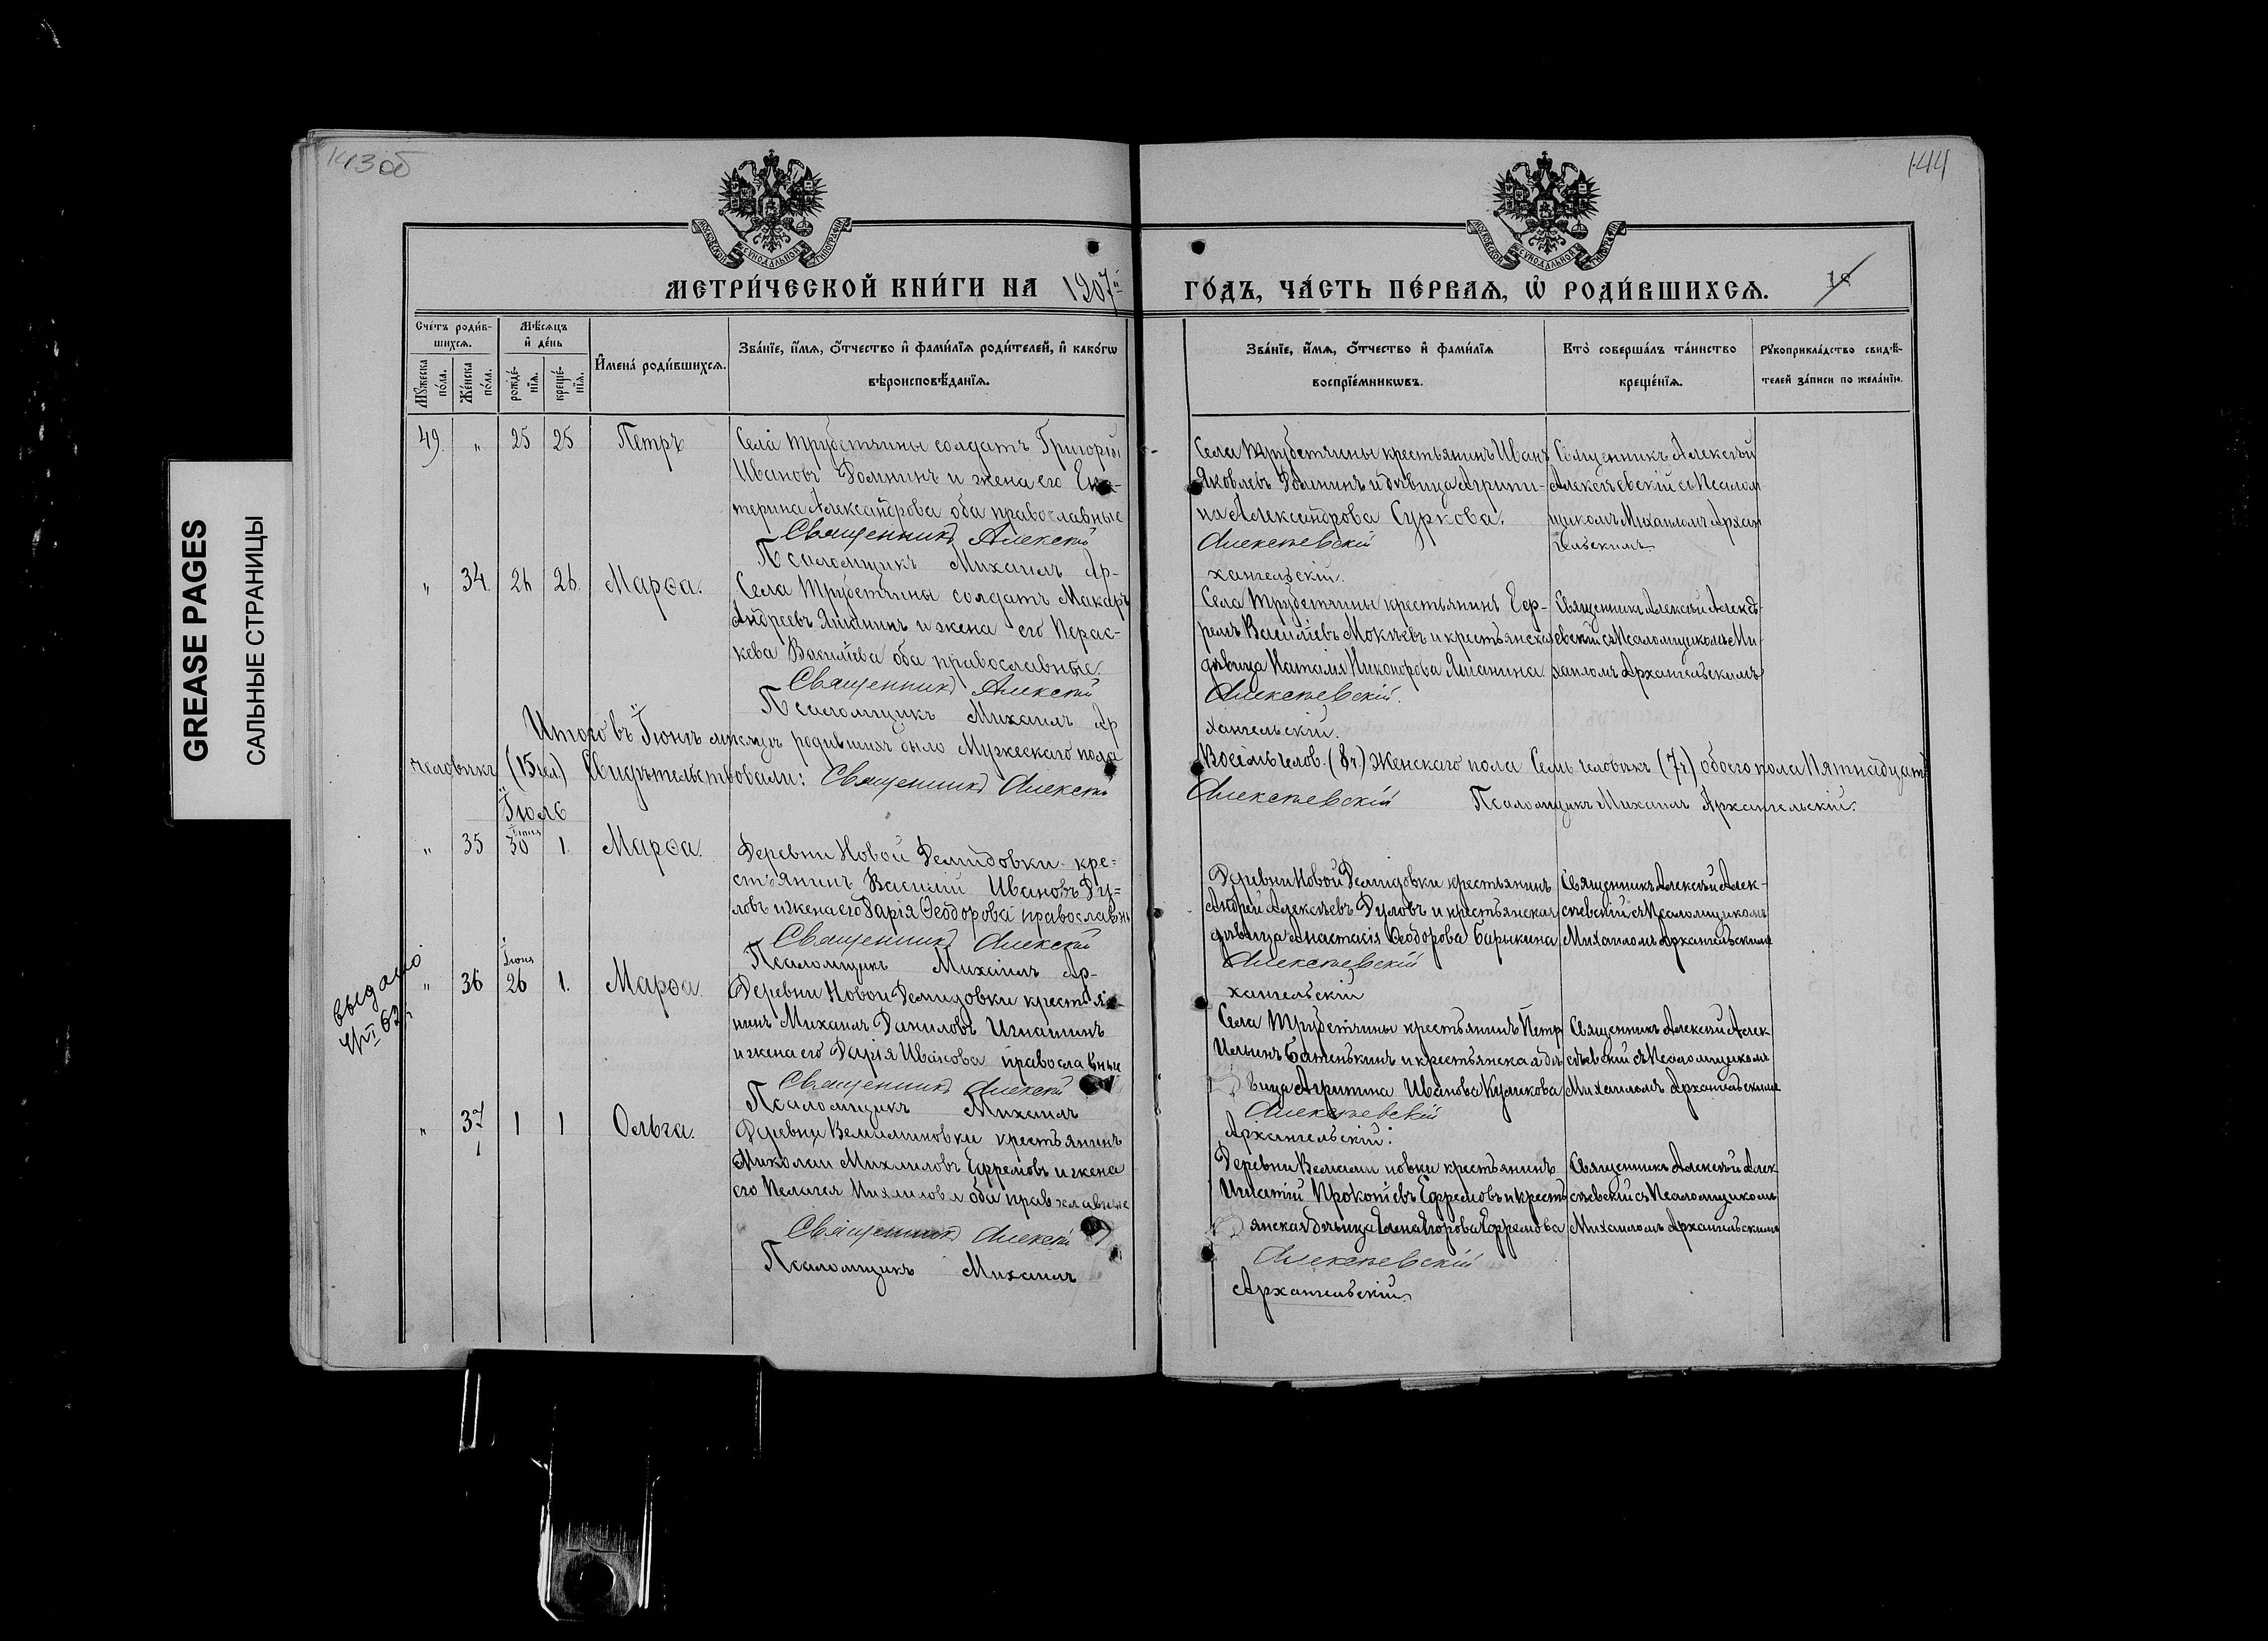 143 об
144
GREASE PAGES
САЛЬНЫЕ СТРАНИЦЫ
МОСКОВСКОЙ СѴНОДАЛЬНОЙ ТИПОГРАФІИ
МОСКОВСКОЙ СѴНОДАЛЬНОЙ ТИПОГРАФІИ
МЕТРИ́ЧЕСКОЙ КНИ́ГИ НА 1907й
ГО́ДЪ, ЧА́СТЬ ПЕ́РВАѦ, Ѡ РОДИ́ВШИХСѦ.
Сче́тъ роди́в-
шихсѧ.
Мѣ́сѧцъ
и҆ де́нь
Мꙋжеска по́ла.
Же́нска по́ла.
рожде́-нїѧ.
креще́-нїѧ.
И҆мена̀ роди́вшихсѧ.
Зва́нїе, и҆́мѧ, ѻ҆́тчество и҆ фами́лїѧ роди́телей, и҆ како́гѡ
вѣроисповѣ́данїѧ.
Зва́нїе, и҆́мѧ, ѻ҆́тчество и҆ фами́лїѧ
воспрїе́мникѡвъ.
Кто̀ соверша́лъ та́инство
креще́нїѧ.
Рꙋкоприкла́дство свидѣ́-
телей за́писи по жела́нїю.
49. " 25 25 Петръ
Села Трубетчины солдатъ Григорій
Ивановъ Домнинъ и жена его Ека-
терина Александрова оба православные
Священникъ Алексѣй
Псаломщикъ Михаилъ Ар-
Села Трубетчины крестьянинъ Иванъ
Яковлевъ Домнинъ и дѣвица Агрипи-
на Александрова Суркова.
Алексѣевскій
хангельскій.
Священникъ Алексѣй
Алексѣевскій съ Псалом
щикомъ Михаиломъ Архан
гельскимъ
" 34. 26 26. Марѳа.
Села Трубетчины солдатъ Макаръ
Андреевъ Яшанинъ и жена его Парас-
кева Васильева оба православные.
Священникъ Алексѣй
Псаломщикъ Михаилъ Ар
Села Трубетчины крестьянинъ Еф-
ремъ Васильевъ Мокѣевъ и крестьянская
дѣвица Наталія Никонорова Яшанина
Алексѣевскій.
хангельскій.
Священникъ Алексѣй Алексѣ-
евскій съ Псаломщикомъ Ми-
хаиломъ Архангельскимъ
Итого въ Іюнѣ мѣсяцѣ родившихъ было Мужескаго пола
Восемь челов. (8 ч.) Женскаго пола Семь человѣкъ (7 ч) обоего пола Пятнадцать
человѣкъ (15 чел.) Свидѣтельствовали: Священникъ Алексѣй
Алексѣевскій Псаломщикъ Михаилъ Архангельскій.
Іюль
" 35 Іюня 30 1. Марѳа.
Деревни Новой Демидовки кре-
стьянинъ Василій Ивановъ Ду-
ловъ и жена его Дарія Ѳеодорова православны
Священникъ Алексѣй
Псаломщикъ Михаилъ Ар-
Деревни Новой Демидовки крестьянинъ
Андрей Алексѣевъ Дуловъ и крестьянская
дѣвица Анастасія Ѳеодорова Барыкина
Алексѣевскій
хангельскій
Священникъ Алексѣй Алек-
сѣевскій съ Псаломщикомъ
Михаиломъ Архангельскимъ
выдано
" 36 Іюня 26 1. Марѳа.
Деревни Новой Демидовки крестья-
нинъ Михаилъ Даниловъ Игнашинъ
и жена его Дарія Иванова православные
Священникъ Алексѣй
Псаломщикъ Михаилъ
Села Трубетчины крестьянинъ Петръ
Ильинъ Батенькинъ и крестьянская дѣ
вица Агрипина Иванова Куликова
Алексѣевскій
Архангельскій.
Священникъ Алексѣй Алек
сѣевскій съ Псаломщикомъ
Михаиломъ Архангельскимъ
" 37 1 1 Ольга.
Деревни Вельяминовки крестьянинъ
Николай Михаиловъ Ефремовъ и жена
его Пелагея Михаилова оба православные
Священникъ Алексѣй
Псаломщикъ Михаилъ
Деревни Вельяминовки крестьянинъ
Игнатій Прокопіевъ Ефремовъ и кресть
янская дѣвица Елена Егорова Ефремова
Алексѣевскій
Архангельскій.
Священникъ Алексѣй Алек
сѣевскій съ Псаломщикомъ
Михаиломъ Архангельскимъ